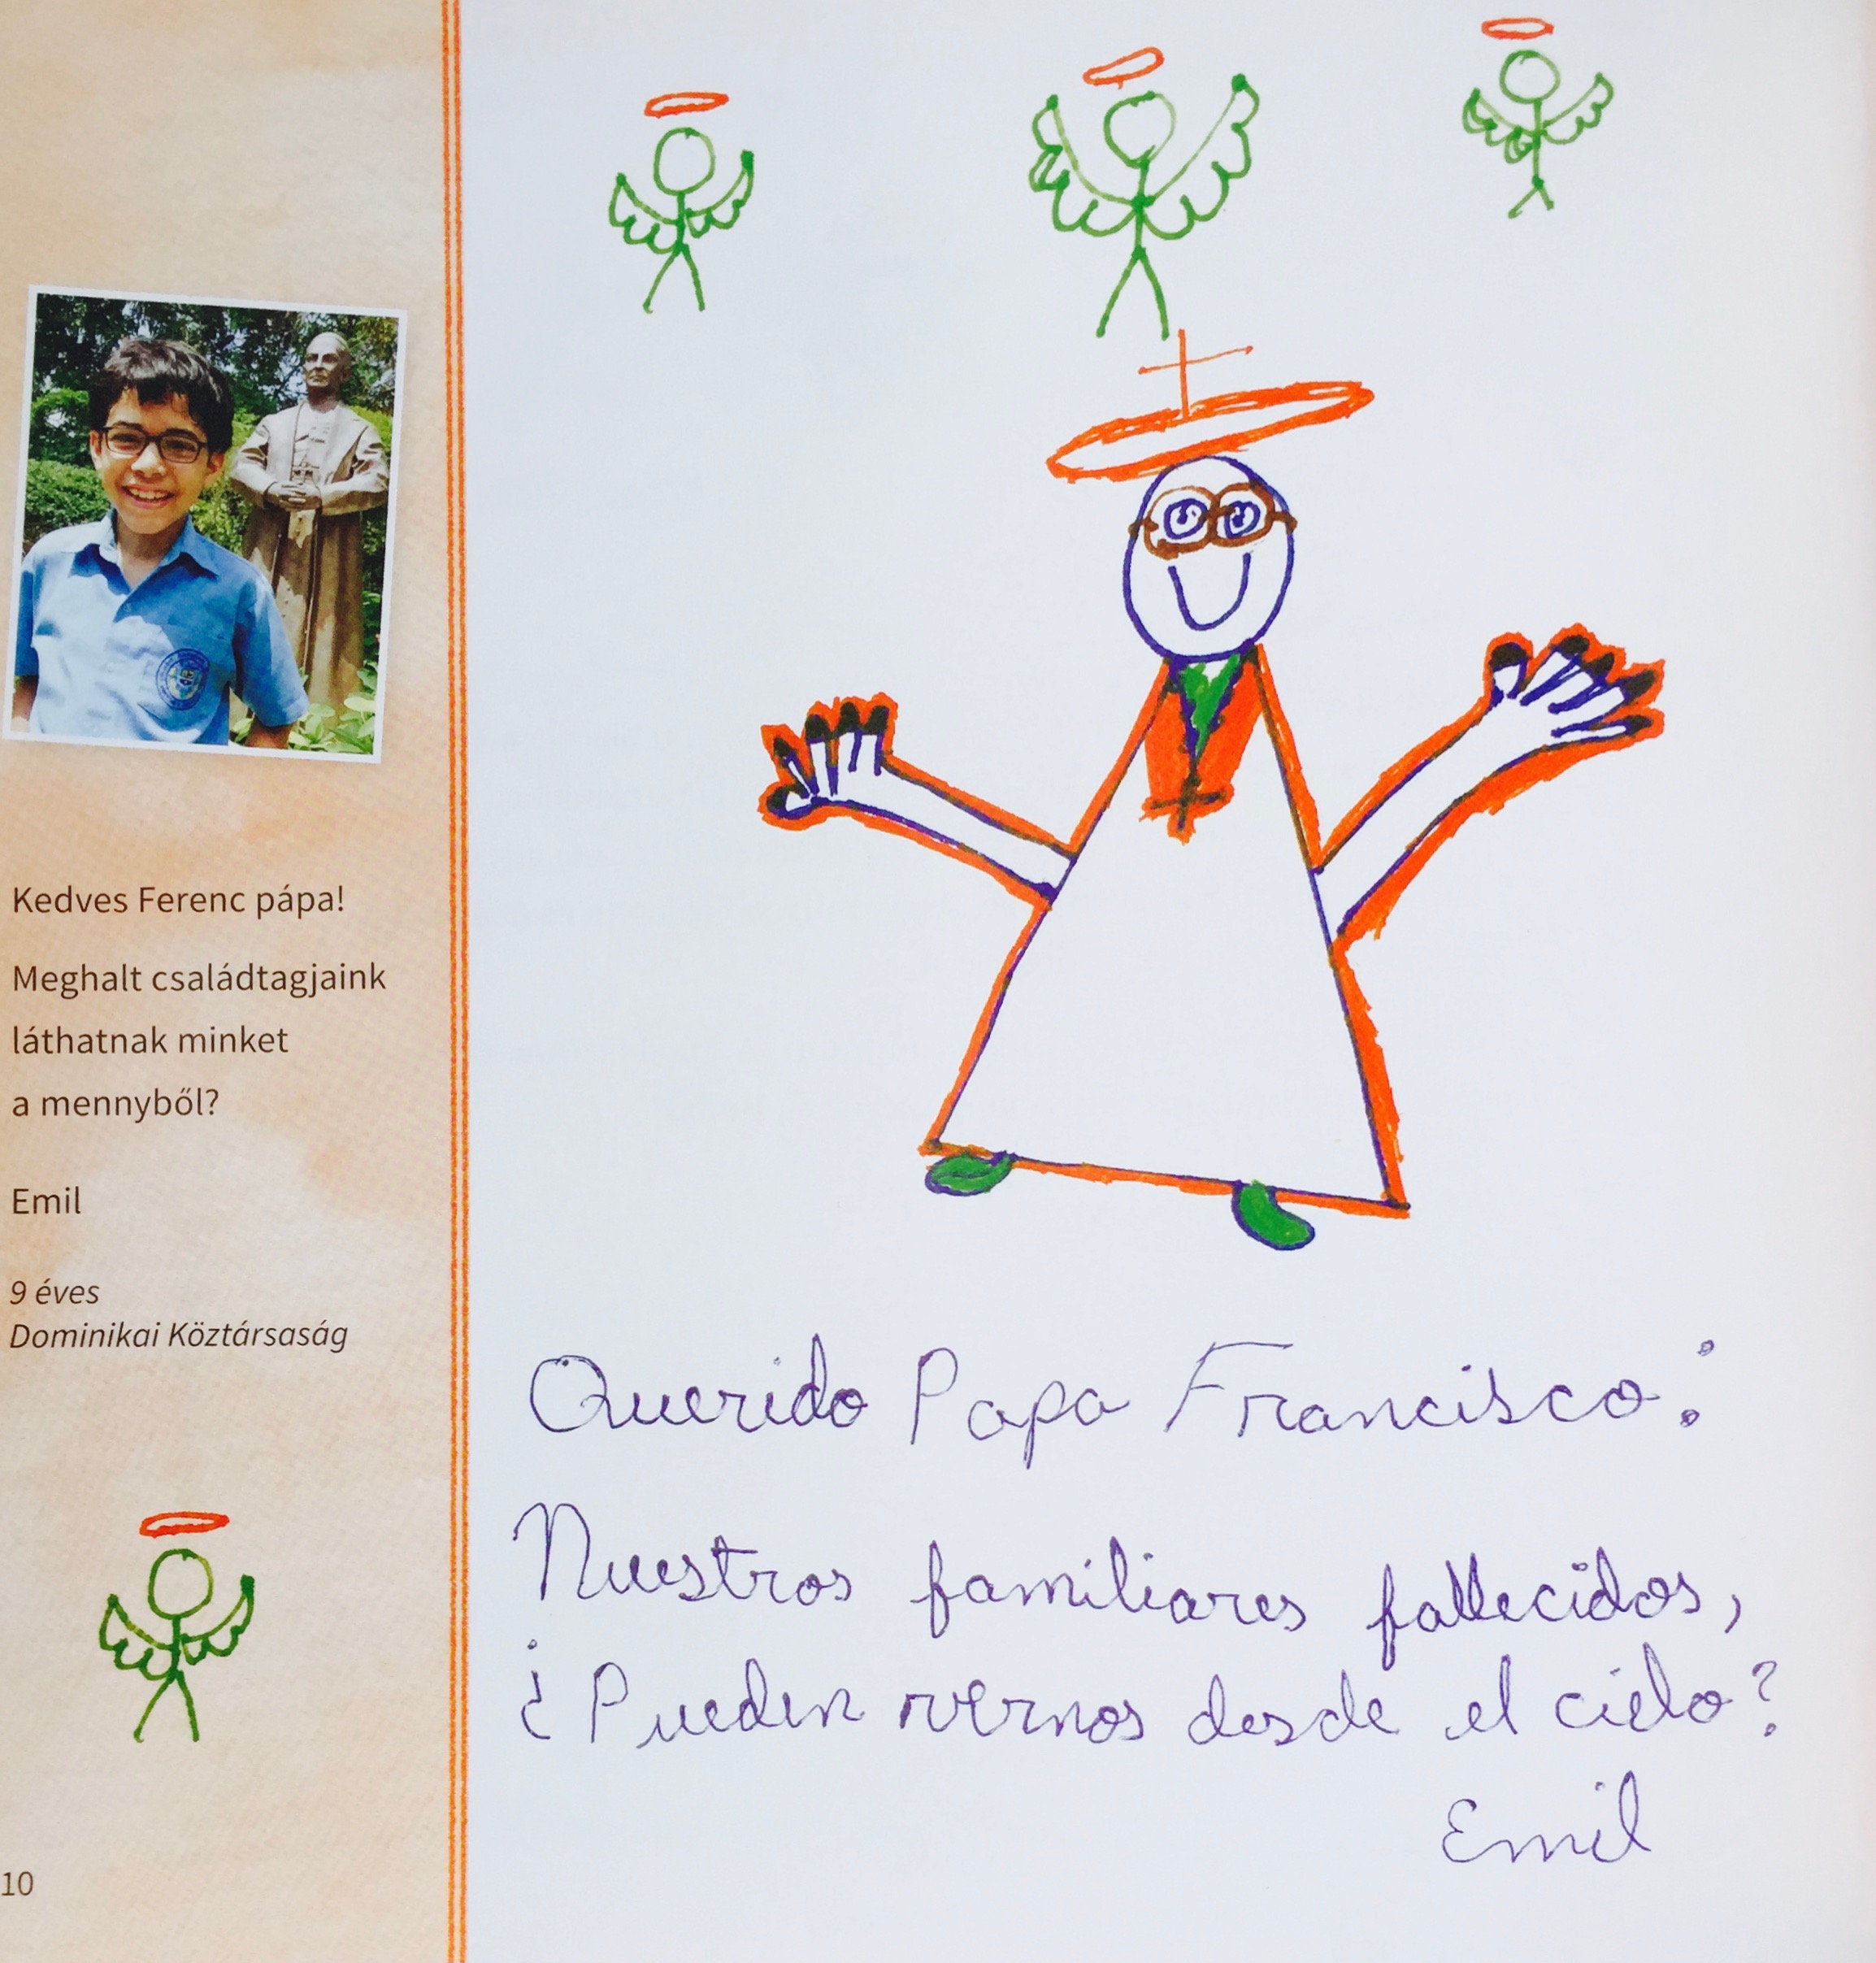 Kedves Ferenc pápa!
Meghalt családtagjaink
láthatnak minket
a mennyből?
Emil
9 éves
Dominikai Köztársaság
10
Querido Papa Francisco:
Nuestros familiares fallecidos,
¿Pueden vernos desde el cielo?
Emil